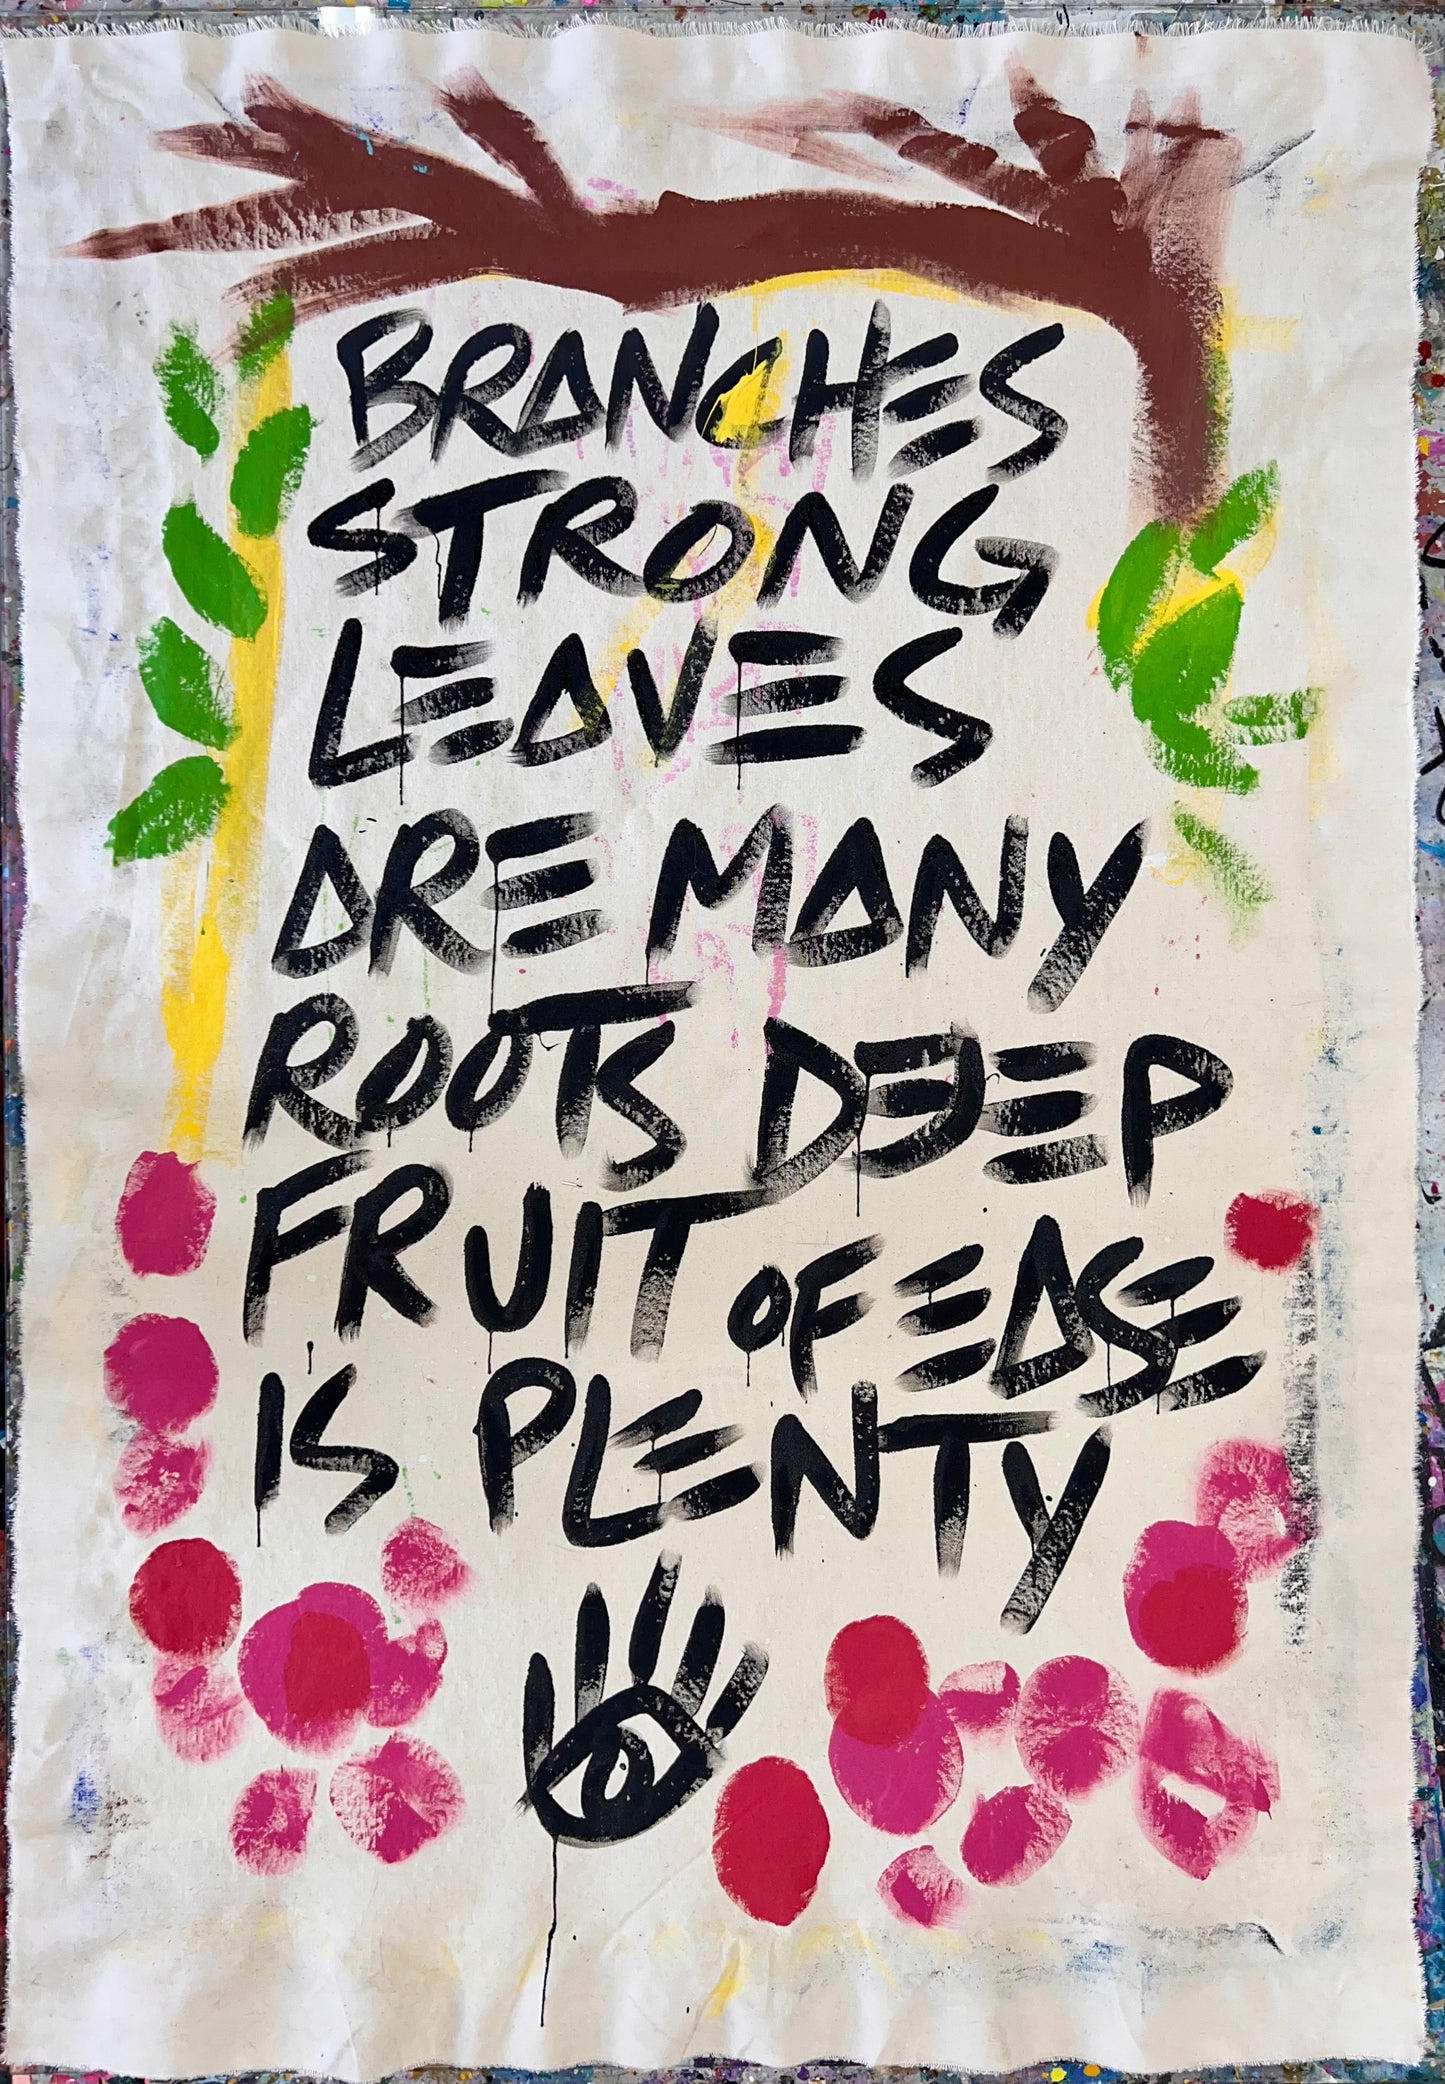 BRANCHES
STRONG
LEAVES
ARE MANY
ROOTS DEEP
FRUIT OF EASE
IS PLENTY